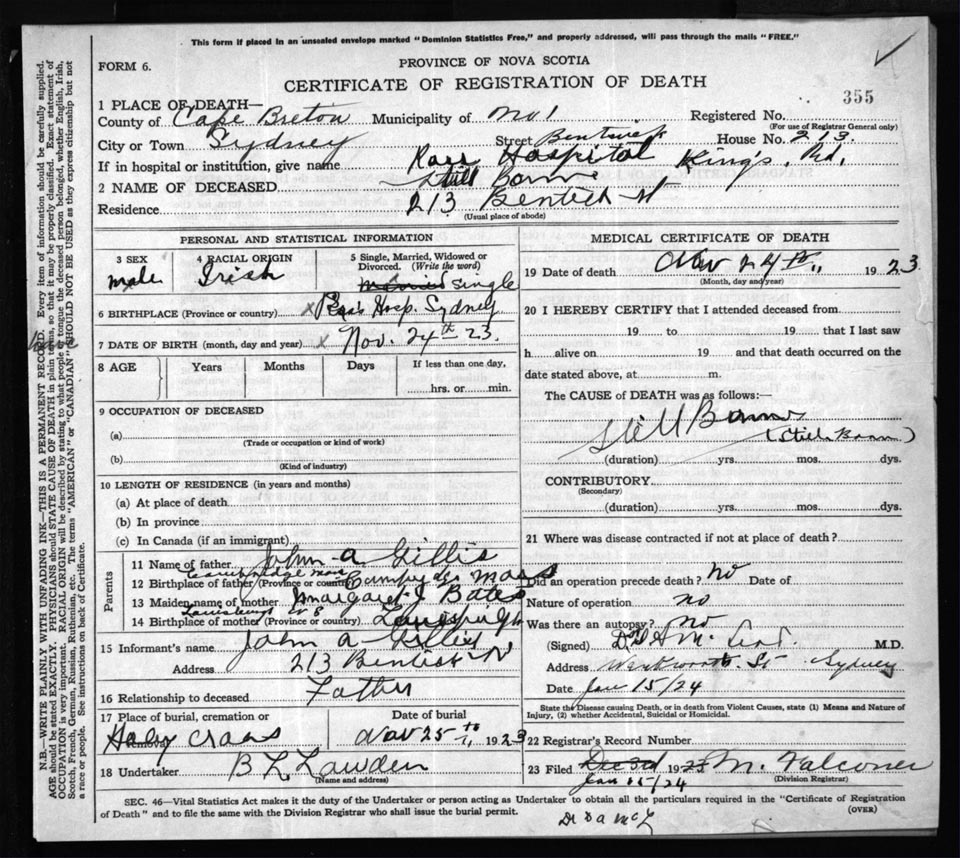 This form if placed in an unsealed envelope marked "Dominion Statistics Free," and properly addressed, will pass through the mails "FREE."
FORM 6.
PROVINCE OF NOVA SCOTIA
CERTIFICATE OF REGISTRATION OF DEATH
355
1 PLACE OF DEATH—
County of Cape Breton Municipality of No 1 Registered No.
(For use of Registrar General only)
City or Town Sydney Street House No. 213
If in hospital or institution, give name Ross Hospital Kings Rd,
2 NAME OF DECEASED Still Borne
Residence 213
(Usual place of abode)
PERSONAL AND STATISTICAL INFORMATION
3 SEX
male
4 RACIAL ORIGIN
Irish
5 Single, Married, Widowed or Divorced. (Write the word)
Single
6 BIRTHPLACE (Province or country) x Ross Hosp. Sydney
7 DATE OF BIRTH (month, day and year) x Nov. 24th 23.
8 AGE Years Months Days If less than one day,
hrs. or min.
9 OCCUPATION OF DECEASED
(a)
(Trade or occupation or kind of work)
(b)
(Kind of industry)
10 LENGTH OF RESIDENCE (in years and months)
(a) At place of death
(b) In province
(c) In Canada (if an immigrant)
Parents
11 Name of father John A Gillis
12 Birthplace of father (Province or country) Mass
13 Maiden name of mother Margaret J Bates
14 Birthplace of mother (Province or country)
15 Informant's name John A Gillis
Address 213
16 Relationship to deceased Father
17 Place of burial, cremation or removal
Holy Cross
Date of burial
Nov 25th, 1923
18 Undertaker
(Name and address)
MEDICAL CERTIFICATE OF DEATH
19 Date of death Nov 24th, 1923
(Month, day and year)
20 I HEREBY CERTIFY that I attended deceased from
19 to 19 that I last saw
h alive on 19 and that death occurred on the
date stated above, at m.
The CAUSE of DEATH was as follows:—
Still Borne
(Still Born)
(duration) yrs. mos. dys.
CONTRIBUTORY
(Secondary)
(duration) yrs. mos. dys.
21 Where was disease contracted if not at place of death?
Did an operation precede death? No Date of
Nature of operation no
Was there an autopsy? No
(Signed) M.D.
Address Wentworth St Sydney
Date Jan 15/24
State the Disease causing Death, or in death from Violent Causes, state (1) Means and Nature of
Injury, (2) whether Accidental, Suicidal or Homicidal.
22 Registrar's Record Number
23 Filed 192 M. Falconer
Jan 15/24
(Division Registrar)
SEC. 46—Vital Statistics Act makes it the duty of the Undertaker or person acting as Undertaker to obtain all the particulars required in the "Certificate of Registration
of Death" and to file the same with the Division Registrar who shall issue the burial permit.
(OVER)
N.B.—WRITE PLAINLY WITH UNFADING INK—THIS IS A PERMANENT RECORD. Every item of information should be carefully supplied.
AGE should be stated EXACTLY. PHYSICIANS should STATE CAUSE OF DEATH in plain terms, so that it may be properly classified. Exact statement of
OCCUPATION is very important. RACIAL ORIGIN will be described by stating to what people or tongue the deceased person belonged, whether English, Irish,
Scotch, French, German, Russian, Ruthenian, etc. The terms "AMERICAN" or "CANADIAN" SHOULD NOT BE USED as they express citizenship but not
a race or people. See instructions on back of Certificate.